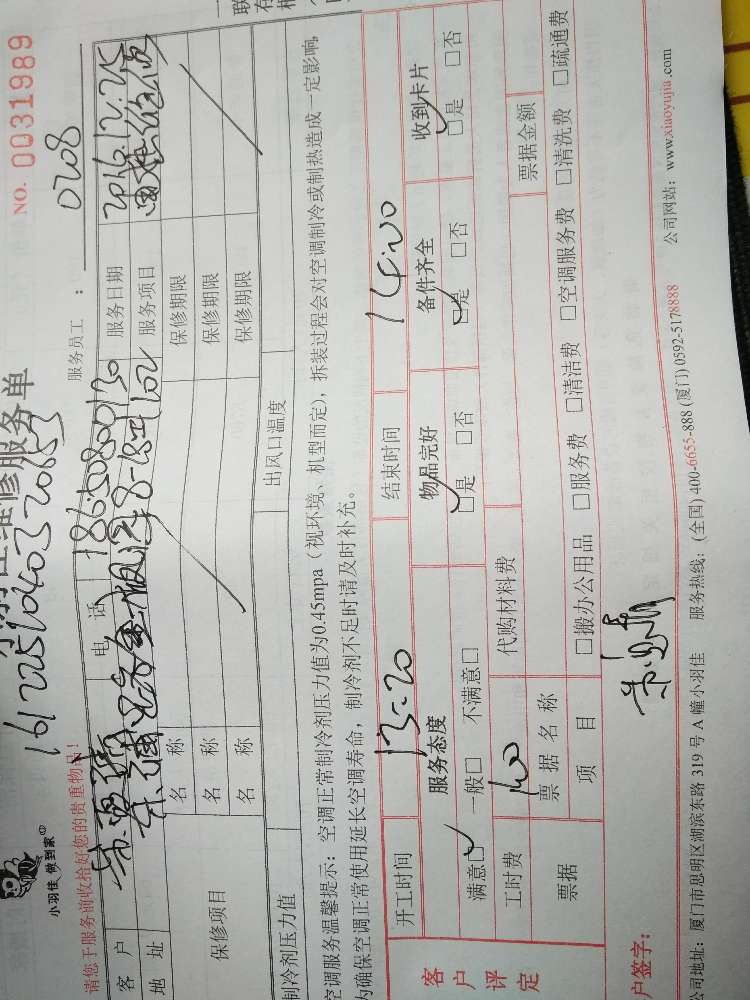 NO. 0031989
维修服务单
161225104032018
小羽佳 做到家
请您于服务前收拾好您的贵重物品！
服务员工： 0208
客户 电话 18650800130 服务日期 2016.12.25
地址 8-1811102 服务项目
保修项目 名称 保修期限
名称 保修期限
名称 保修期限
制冷剂压力值 出风口温度
空调服务温馨提示：空调正常制冷剂压力值为0.45mpa（视环境、机型而定），拆装过程会对空调制冷或制热造成一定影响，
为确保空调正常使用延长空调寿命，制冷剂不足时请及时补充。
客户评定
开工时间 13:20 结束时间 14:00
服务态度 物品完好 备件齐全 收到卡片
满意□ 一般□ 不满意□ □是 □否 □是 □否 □是 □否
工时费 100 代购材料费
票据 票据名称 票据金额
项目 □搬办公用品 □服务费 □清洁费 □空调服务费 □清洗费 □疏通费
户签字：
公司地址：厦门市思明区湖滨东路 319 号 A 幢小羽佳 服务热线：(全国) 400-6655-888 (厦门) 0592-5178888 公司网站：www.xiaoyujia.com